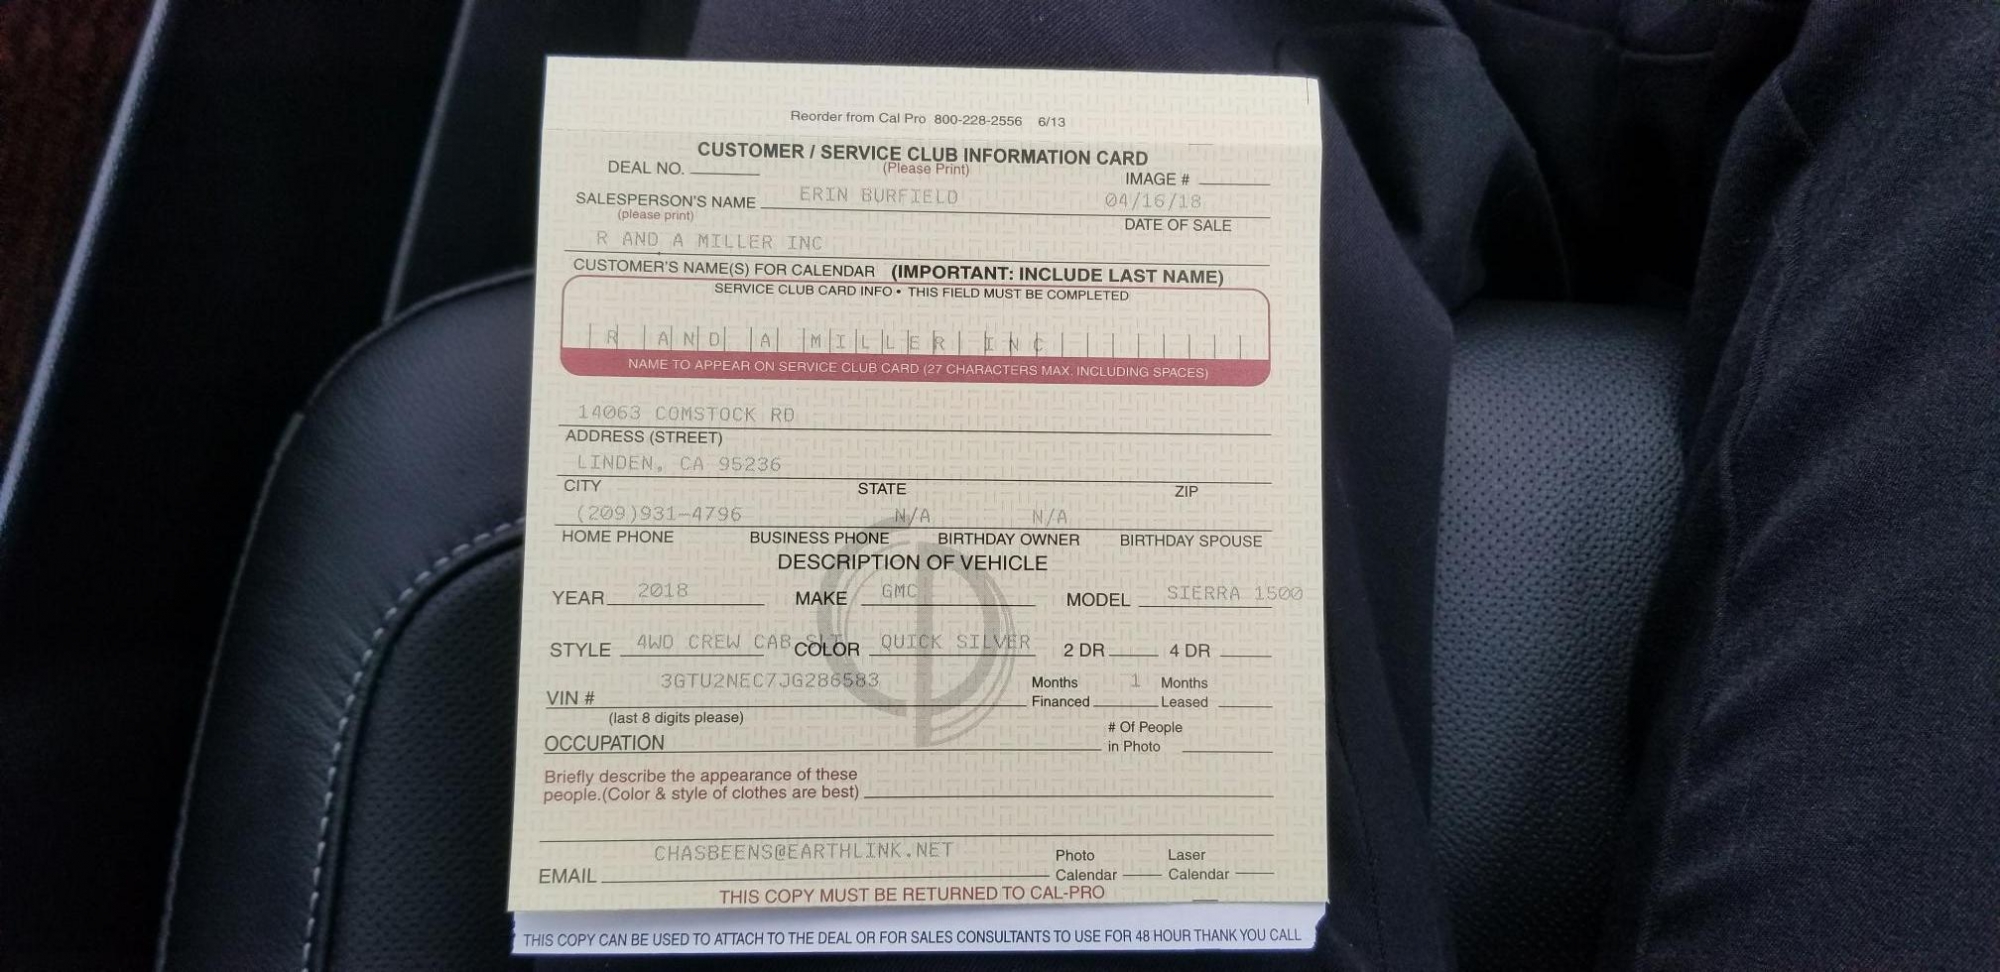 Reorder from Cal Pro 800-228-2556 6/13
CUSTOMER / SERVICE CLUB INFORMATION CARD
DEAL NO. (Please Print) IMAGE #
SALESPERSON'S NAME ERIN BURFIELD 04/16/18
(please print) DATE OF SALE
R AND A MILLER INC
CUSTOMER'S NAME(S) FOR CALENDAR (IMPORTANT: INCLUDE LAST NAME)
SERVICE CLUB CARD INFO • THIS FIELD MUST BE COMPLETED
R AND A MILLER INC
NAME TO APPEAR ON SERVICE CLUB CARD (27 CHARACTERS MAX. INCLUDING SPACES)
14063 COMSTOCK RD
ADDRESS (STREET)
LINDEN, CA 95236
CITY STATE ZIP
(209)931-4796 N/A N/A
HOME PHONE BUSINESS PHONE BIRTHDAY OWNER BIRTHDAY SPOUSE
DESCRIPTION OF VEHICLE
YEAR 2018 MAKE GMC MODEL SIERRA 1500
STYLE 4WD CREW CAB SLT COLOR QUICK SILVER 2 DR 4 DR
3GTU2NEC7JG286583 Months 1 Months
VIN # Financed Leased
(last 8 digits please) # Of People
OCCUPATION in Photo
Briefly describe the appearance of these
people.(Color & style of clothes are best)
CHASBEENS@EARTHLINK.NET Photo Laser
EMAIL Calendar Calendar
THIS COPY MUST BE RETURNED TO CAL-PRO
THIS COPY CAN BE USED TO ATTACH TO THE DEAL OR FOR SALES CONSULTANTS TO USE FOR 48 HOUR THANK YOU CALL